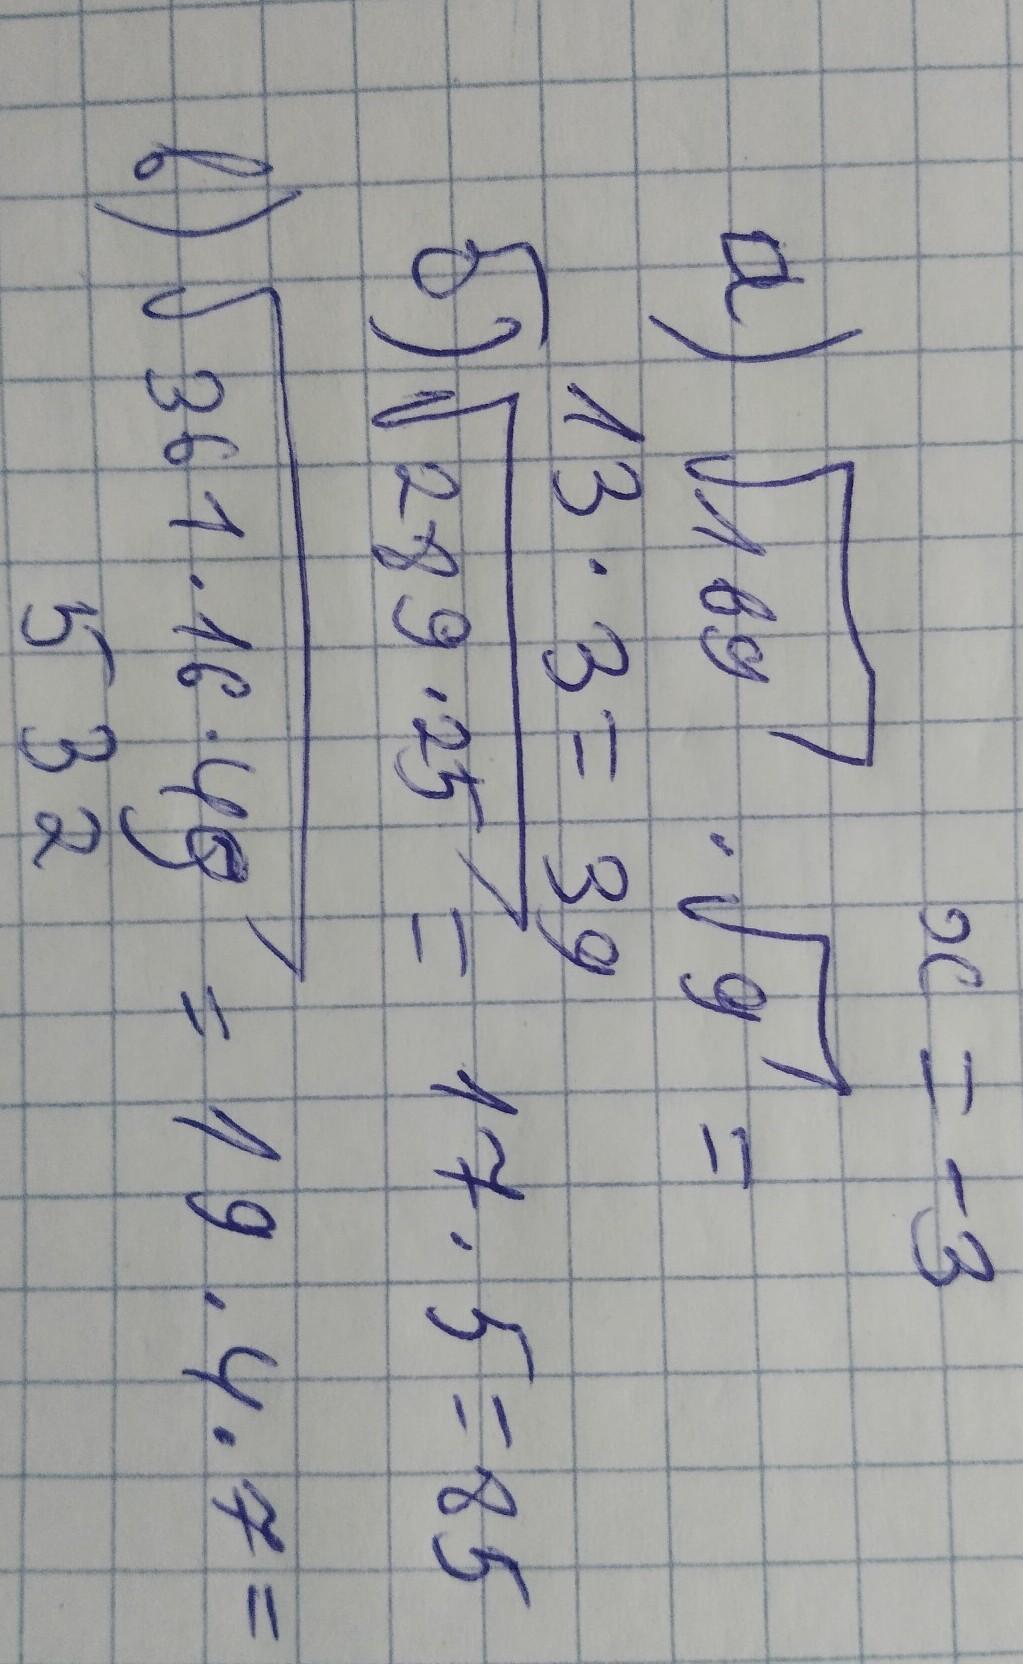 x = -3
а) √169 · √9 =
13 · 3 = 39
б) √289 · 25 = 17 · 5 = 85
в) √361 · 16 · 49 = 19 · 4 · 7 =
532